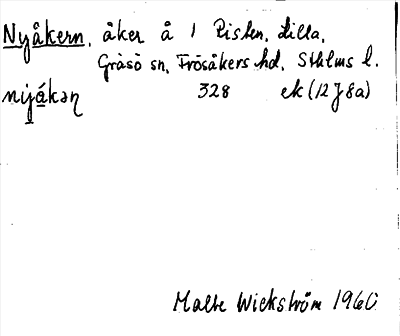 Nyåkern, åker å 1 Risten, Lilla,
Gräsö sn, Frösåkers hd, Sthlms l.
nyákǝn 328 ek (12J8a)
Malte Wickström 1960